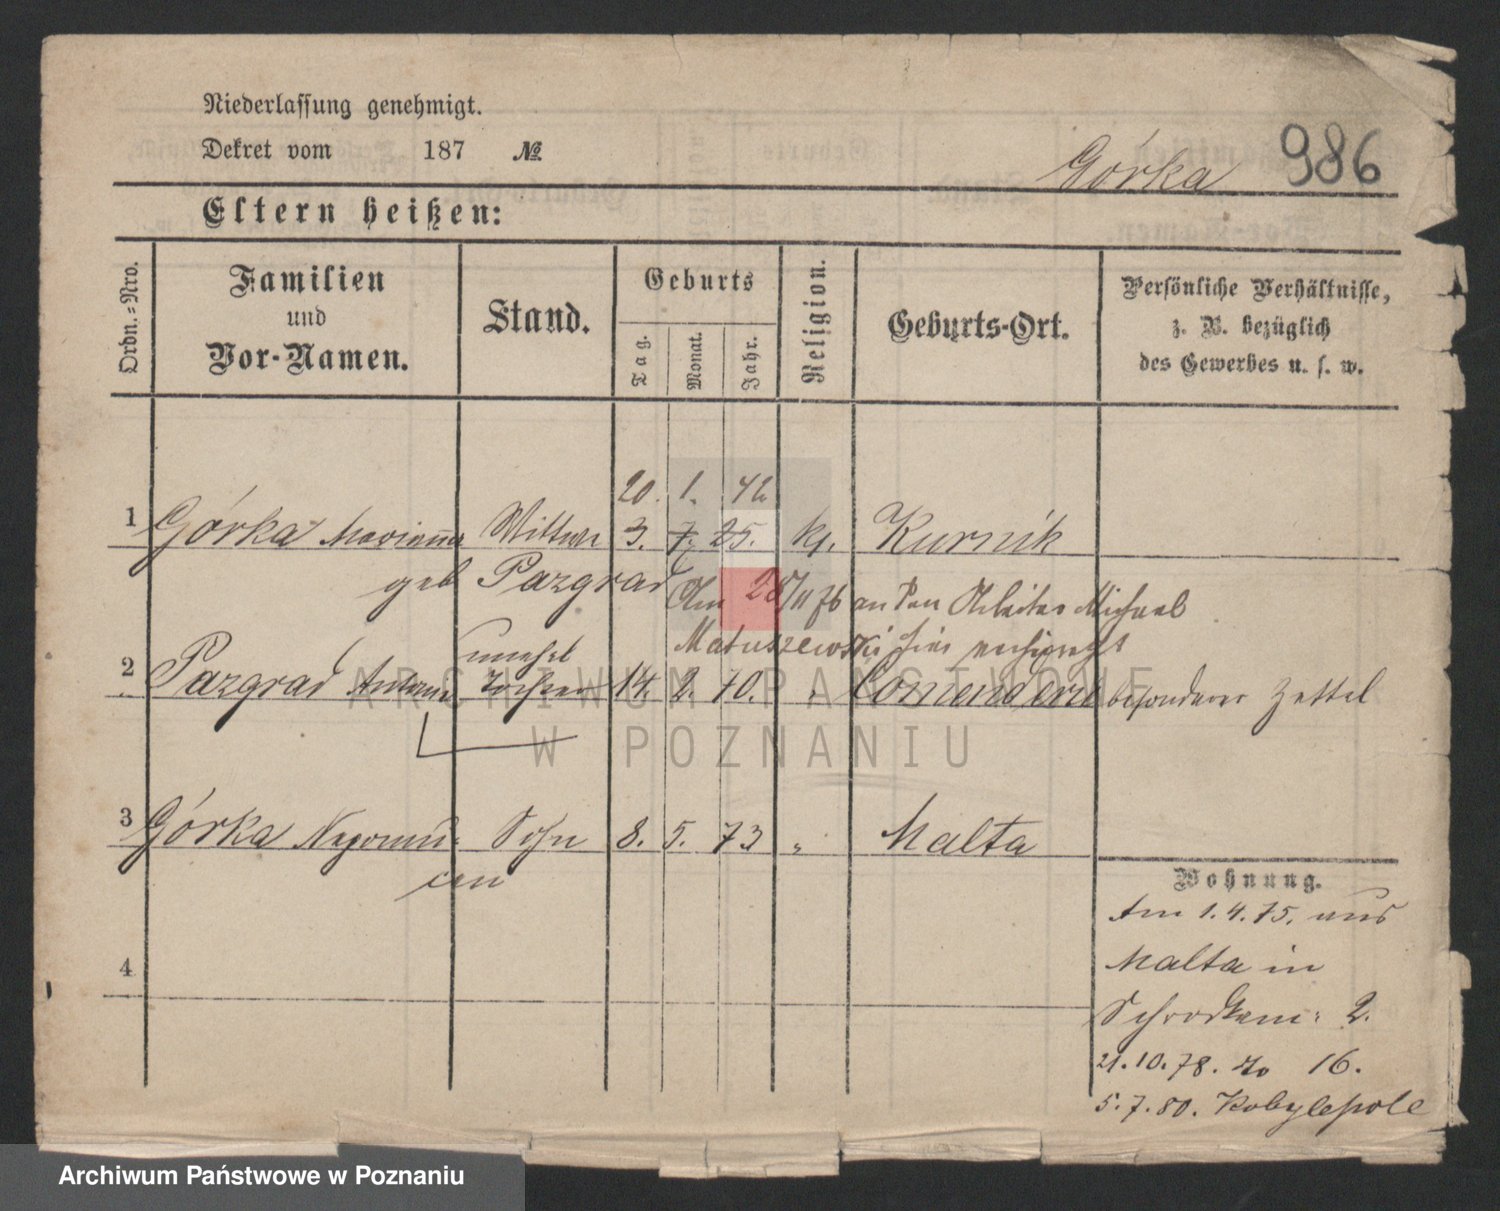 Niederlassung genehmigt.
Dekret vom 187 №
Górka 986
Eltern heißen:
Ordn.-Nro.
Familien
und
Vor-Namen.
Stand.
Geburts
Tag.
Monat.
Jahr.
Religion.
Geburts-Ort.
Persönliche Verhältnisse,
z. B. bezüglich
des Gewerbes u. s. w.
20. 1. 42
1 Górka Marianna Wittwe 3. 7. 25. kt. Kurnik
geb Pazgrad
Am 28/11 76 an den Arbeiter Michael
Matuszewski hier verheirathet
unehel
2 Pazgrad Antonie Tochter 14. 2. 70. " Comenderie besonderer Zettel
3 Górka Nepomu- Sohn 8. 5. 73 " Malta
cen
4
Wohnung.
Am 1.4.75. aus
Malta in
Schrodkam: 2.
21.10.78. do 16.
5.7.80. Kobylepole
ARCHIWUM PAŃSTWOWE
W POZNANIU
Archiwum Państwowe w Poznaniu